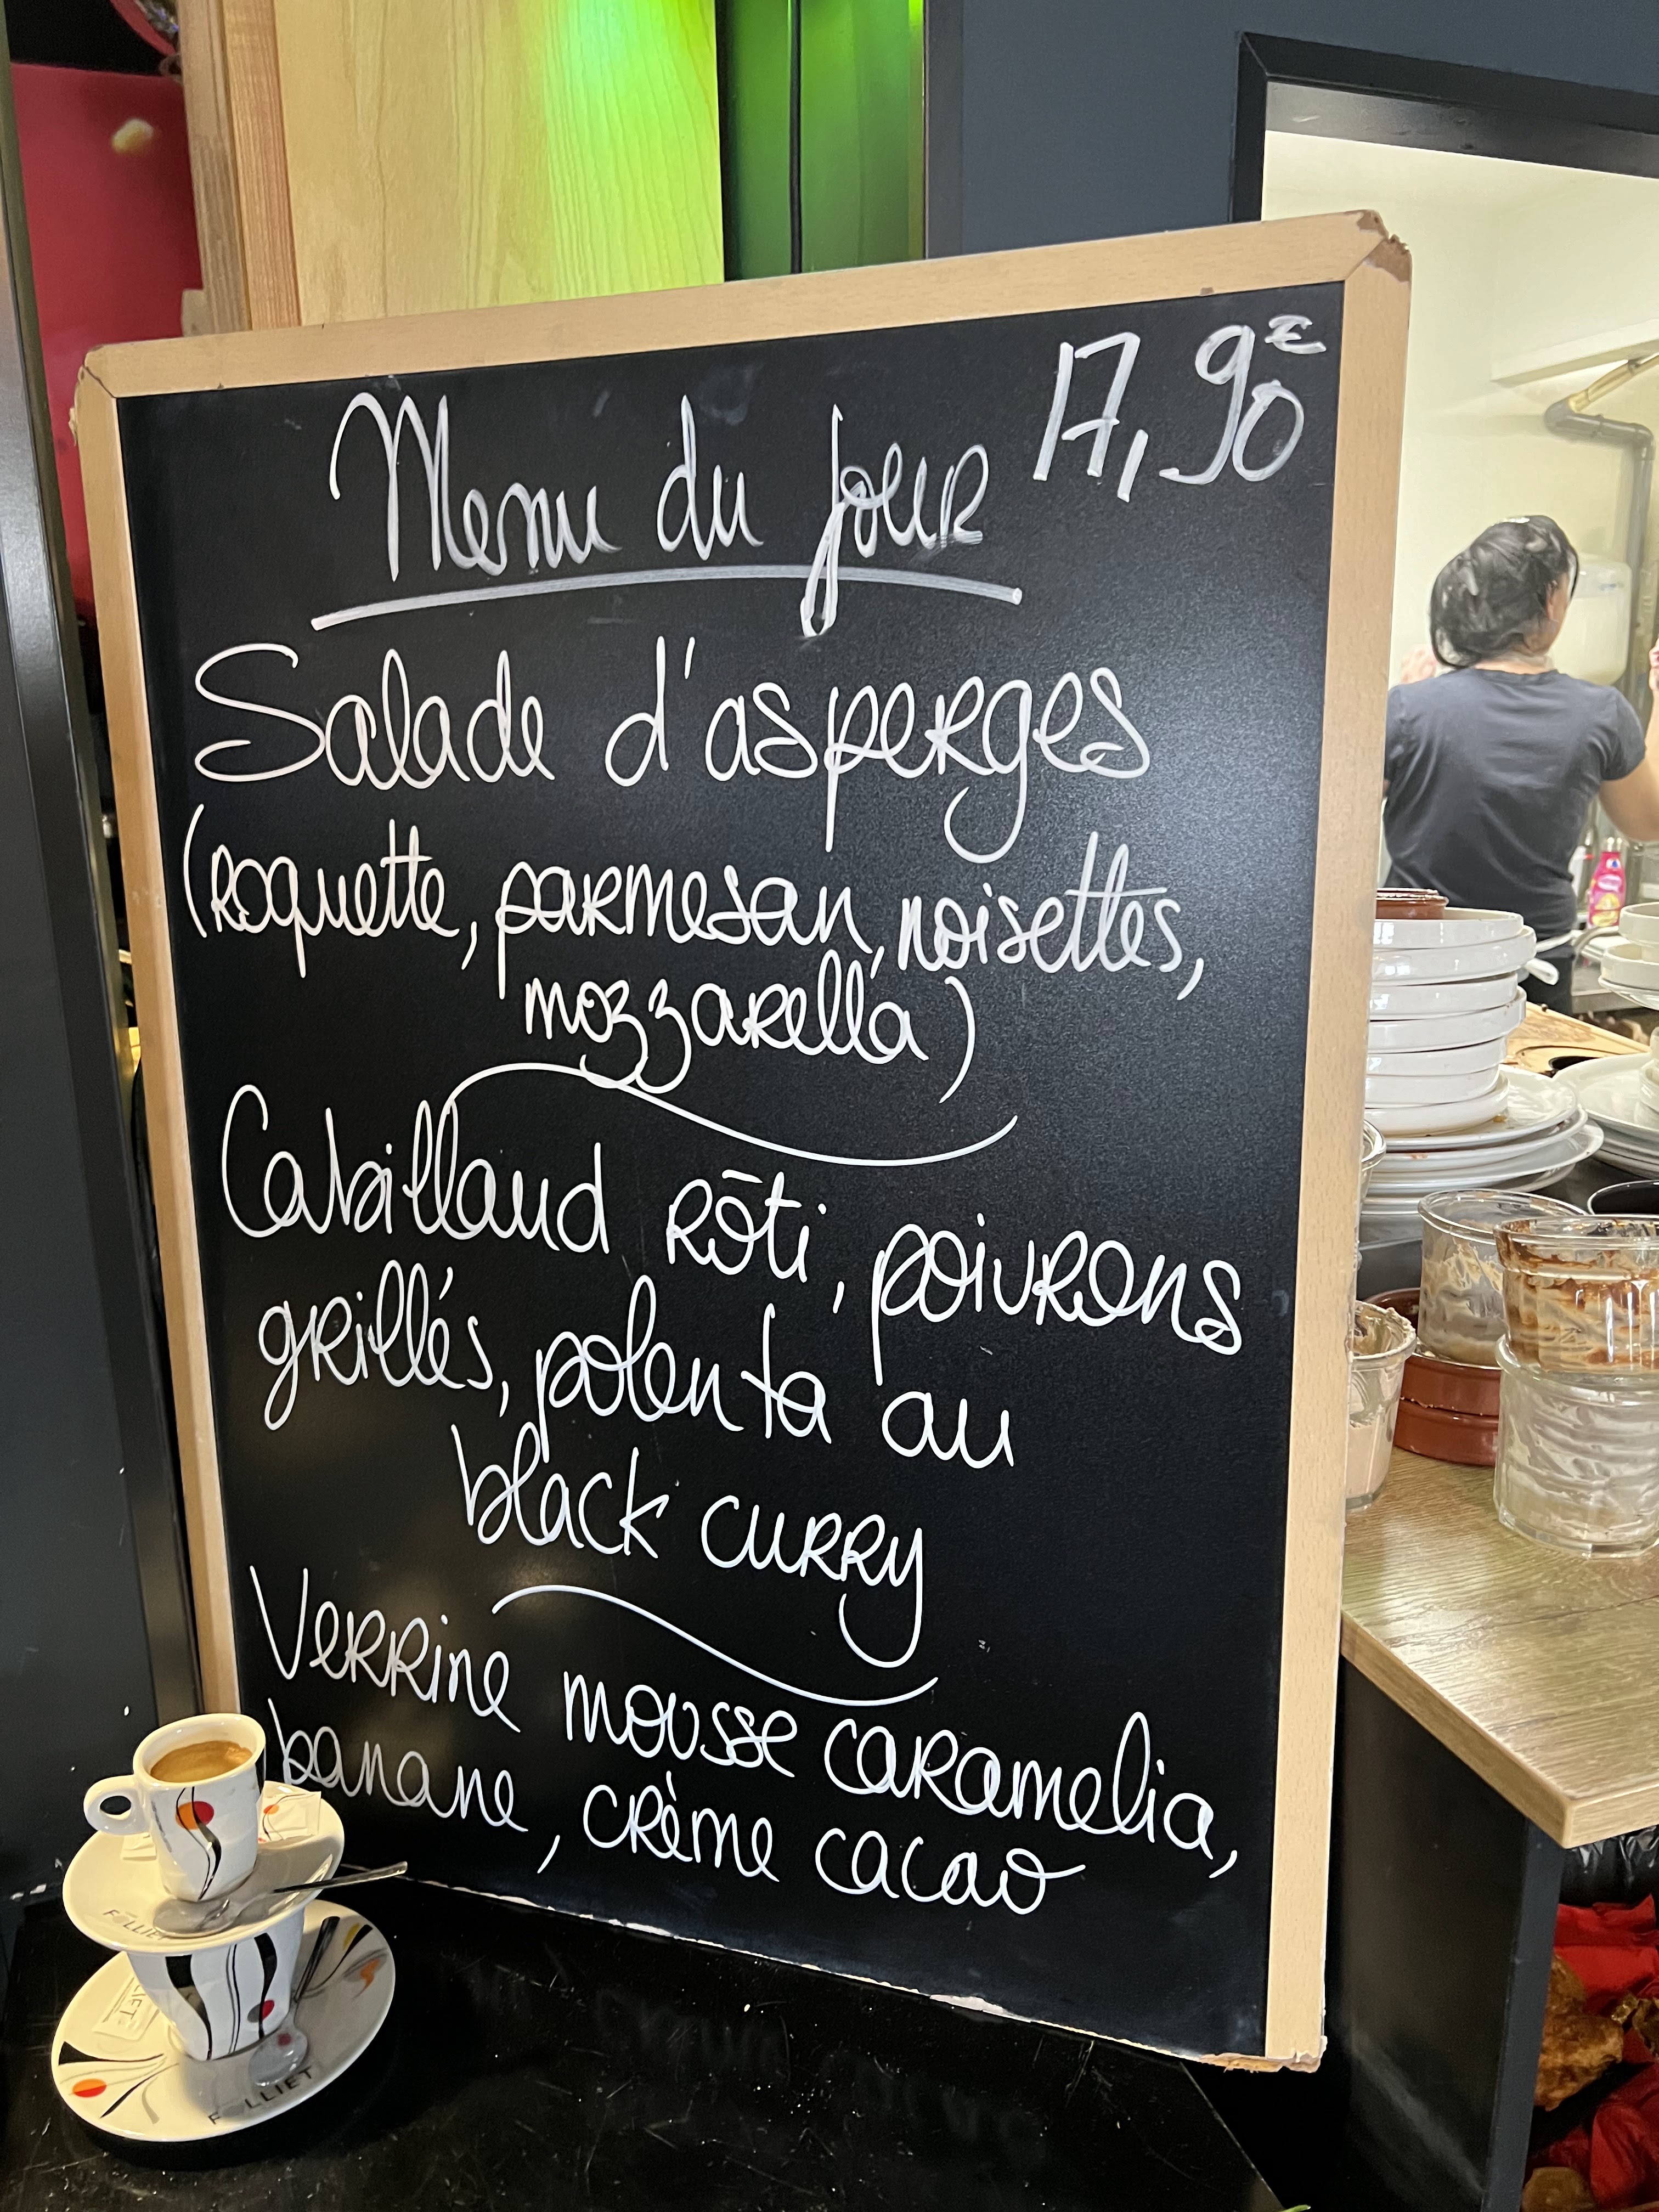 17,90€
Menu du jour
Salade d'asperges
(roquette, parmesan, noisettes,
mozzarella)
Cabillaud rôti, poivrons
grillés, polenta au
black curry
Verrine mousse caramelia,
banane, crème cacao
FOLLIET
FOLLIET